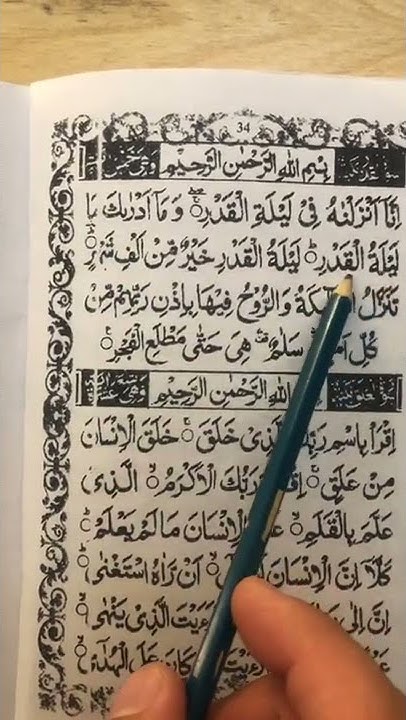 34
بِسْمِ اللهِ الرَّحْمٰنِ الرَّحِيْمِ
اِنَّاۤ اَنْزَلْنٰهُ فِيْ لَيْلَةِ الْقَدْرِ ۚ وَ مَاۤ اَدْرٰىكَ مَا
لَيْلَةُ الْقَدْرِ ؕ لَيْلَةُ الْقَدْرِ خَيْرٌ مِّنْ اَلْفِ شَهْرٍ ؕ
تَنَزَّلُ وَالرُّوْحُ فِيْهَا بِاِذْنِ رَبِّهِمْ مِّنْ
كُلِّ سَلٰمٌ هِيَ حَتّٰى مَطْلَعِ الْفَجْرِ
بِسْمِ اللهِ الرَّحْمٰنِ الرَّحِيْمِ
اِقْرَاْ بِاسْمِ الَّذِيْ خَلَقَ ۚ خَلَقَ الْاِنْسَانَ
مِنْ عَلَقٍ ۚ وَرَبُّكَ الْاَكْرَمُ ۙ الَّذِيْ
عَلَّمَ بِالْقَلَمِ ۙ الْاِنْسَانَ مَا لَمْ يَعْلَمْ ؕ
كَلَّاۤ اِنَّ الْاِنْسَانَ اَنْ رَّاٰهُ اسْتَغْنٰى ؕ
اِنَّ اِلٰى الَّذِيْ يَنْهٰى ۙ
كَانَ عَلَى الْهُدٰۤى ۙ